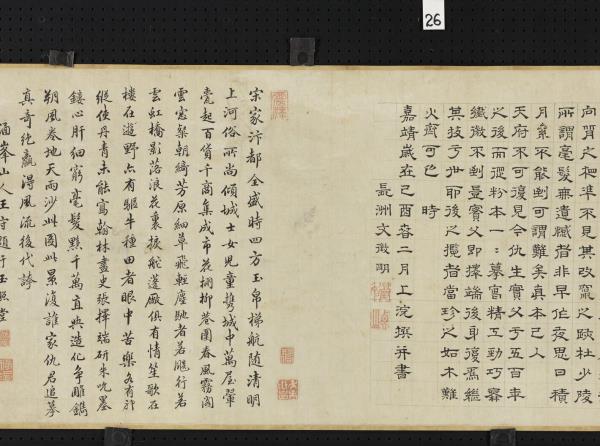 26
向背之枙準不見其改竄之跡杜少陵
所謂毫髮無遺憾者非早作夜思日積
月絫不能到可謂難矣真本已入
天府不可復見今仇生實父于五百年
之後而從粉本一一摹寫精工勁巧寡
纖微不到曼實父即擇端後身復為繼
其技于世耶後之攬者當珍之如木難
火齊可已 時
嘉靖歲在己酉春二月上浣撰并書
長洲文徴明
宋家汴都全盛時四方玉帛梯航随清明
上河俗所尚傾城士女兒童携城中萬屋翬
甍起百貨千商集成市花棚柳巷圍春風霧閣
雲窓粲朝綺芳原細草飛輕塵馳者若飇行若
雲虹橋影落浪花裏捩舵蓬廠俱有情笙歌在
樓在遊野亦有驅牛種田者眼中苦樂各有於
縱使丹青未能寫翰林畫史張擇端研朱吮墨
鏤心肝細窮毫髮黟千萬直與造化争雕鐫
朔風卷地天雨沙此圖此景復誰家仇君追摹
真奇絶贏得風流後代誇
涵峯山人王守題于玉照堂